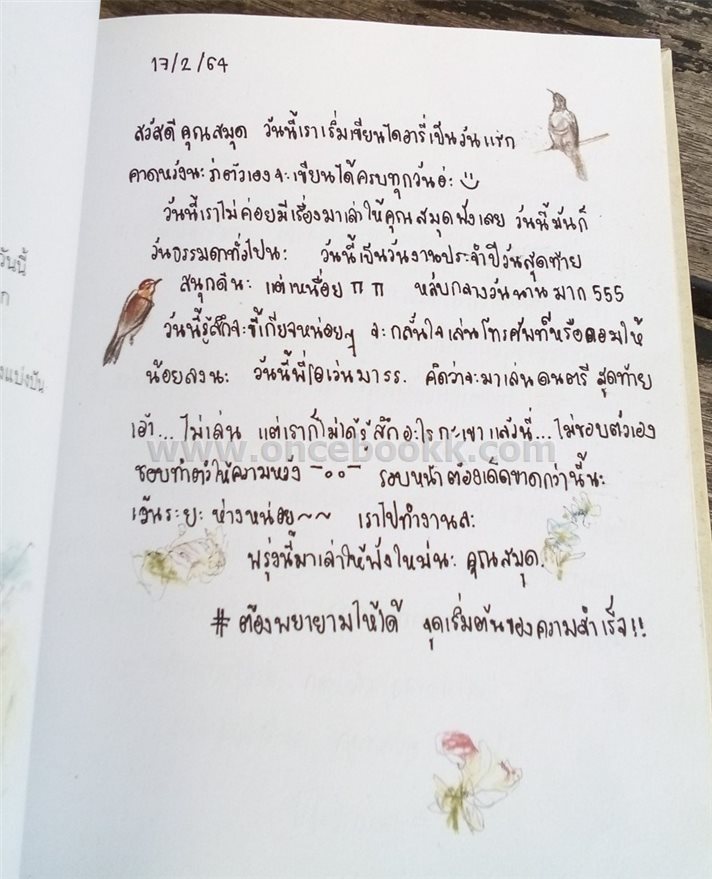 17/2/64
สวัสดี คุณสมุด วันนี้เราเริ่มเขียนไดอารี่เป็นวันแรก
คาดหวังนะว่าตัวเองจะเขียนได้ครบทุกวันอ่ะ
วันนี้เราไม่ค่อยมีเรื่องมาเล่าให้คุณสมุดฟังเลย วันนี้มันก็
วันธรรมดาทั่วไปนะ วันนี้เป็นวันงานประจำปีวันสุดท้าย
สนุกดีนะ แต่เหนื่อย TT TT หลับกลางวันนานมาก 555
วันนี้รู้สึกจะขี้เกียจหน่อยๆ จะกลั้นใจเล่นโทรศัพท์หรือคอมให้
น้อยลงนะ วันนี้พี่โอเว่นมา รร. คิดว่าจะมาเล่นดนตรี สุดท้าย
เอ้า... ไม่เล่น แต่เราก็ไม่ได้รู้สึกอะไรกะเขาแล้วนี่... ไม่ชอบตัวเอง
ชอบทำตัวให้ความหวัง ¯°°¯ รอบหน้าต้องเด็ดขาดกว่านี้นะ
เว้นระยะห่างหน่อย~~ เราไปทำงานละ
พรุ่งนี้มาเล่าให้ฟังใหม่นะ คุณสมุด.
# ต้องพยายามให้ได้ จุดเริ่มต้นของความสำเร็จ!!
วันนี้
ก
งแบ่งปัน
www.oncebookk.com